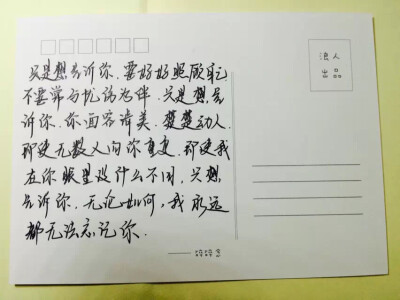 只是想告诉你,要好好照顾自己
不要常与忧郁为伴.只是想告
诉你.你面容清美.楚楚动人.
即使无数人向你重复.即使我
在你眼里没什么不同.只想
告诉你.无论如何,我永远
都无法忘记你.
浪人
出品